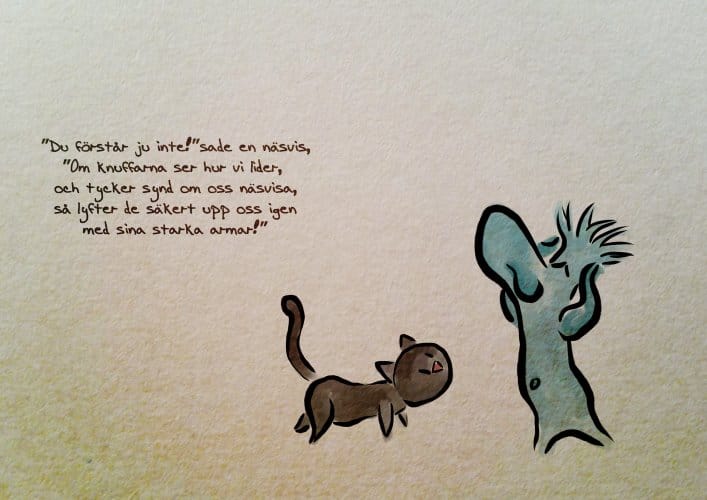 "Du förstår ju inte!"sade en näsvis,
"Om knuffarna ser hur vi lider,
och tycker synd om oss näsvisa,
så lyfter de säkert upp oss igen
med sina starka armar!"